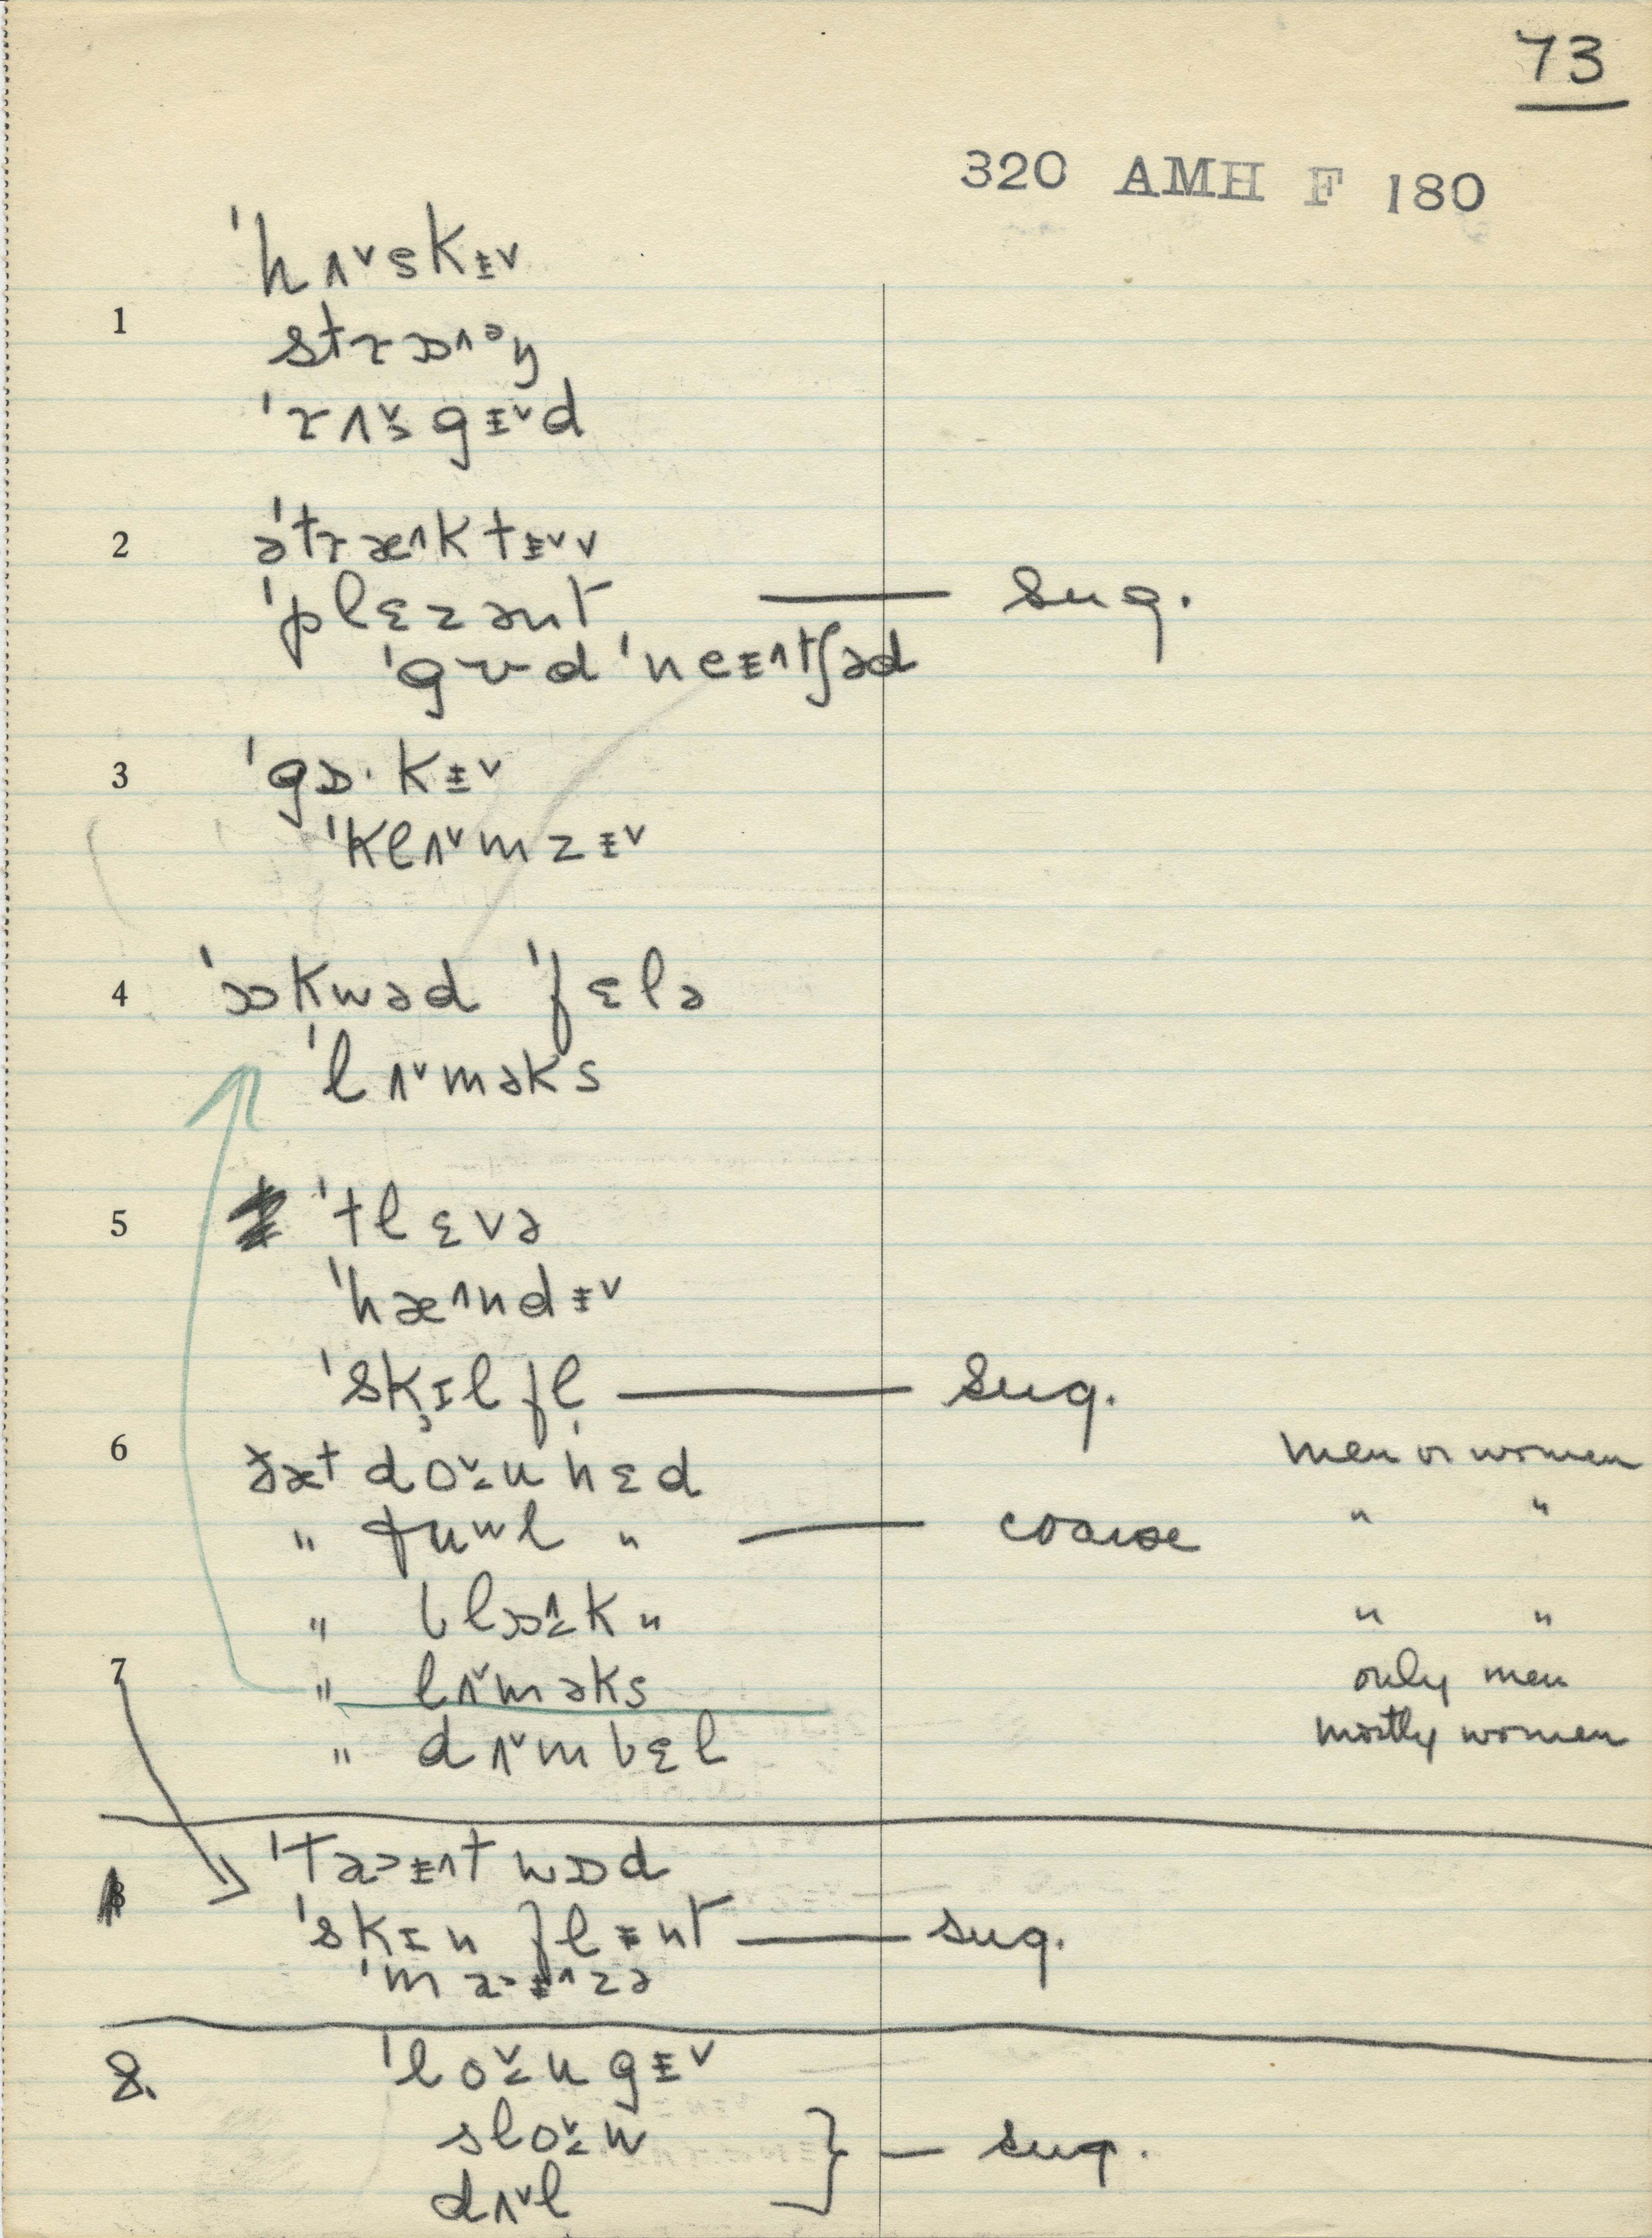 73
320 AMH F 180
ˈhʌ˅skᵻ˅
1 strɒ˄ᵊŋ
ˈrʌ˅gᵻ˅d
2 əˈtræ˄ktᵻ˅v
ˈplɛzənt — sug.
ˈgʊd ˈneᵻ˄tʃəd
3 ˈgɔ·kᵻ˅
ˈklʌ˅mzᵻ˅
4 ˈɒkwəd ˈfɛlə
ˈlʌ˅məks
5 ˈtlɛvə
ˈhæ˄ndᵻ˅
ˈskɪlfl̩ — Sug.
6 ðæt do˅nhɛd men or women
" fuʷl " — coarse " "
" blɒ˄k " " "
7 " lʌ˅məks only men
" dʌ˅mbɛl mostly women
ˈtaᵻ˄twɒd
ˈskɪnflᵻnt — sug.
ˈmaᵻ˄zə
8. ˈlo˅ngᵻ˅
slo˅w } — sug.
dʌ˅l